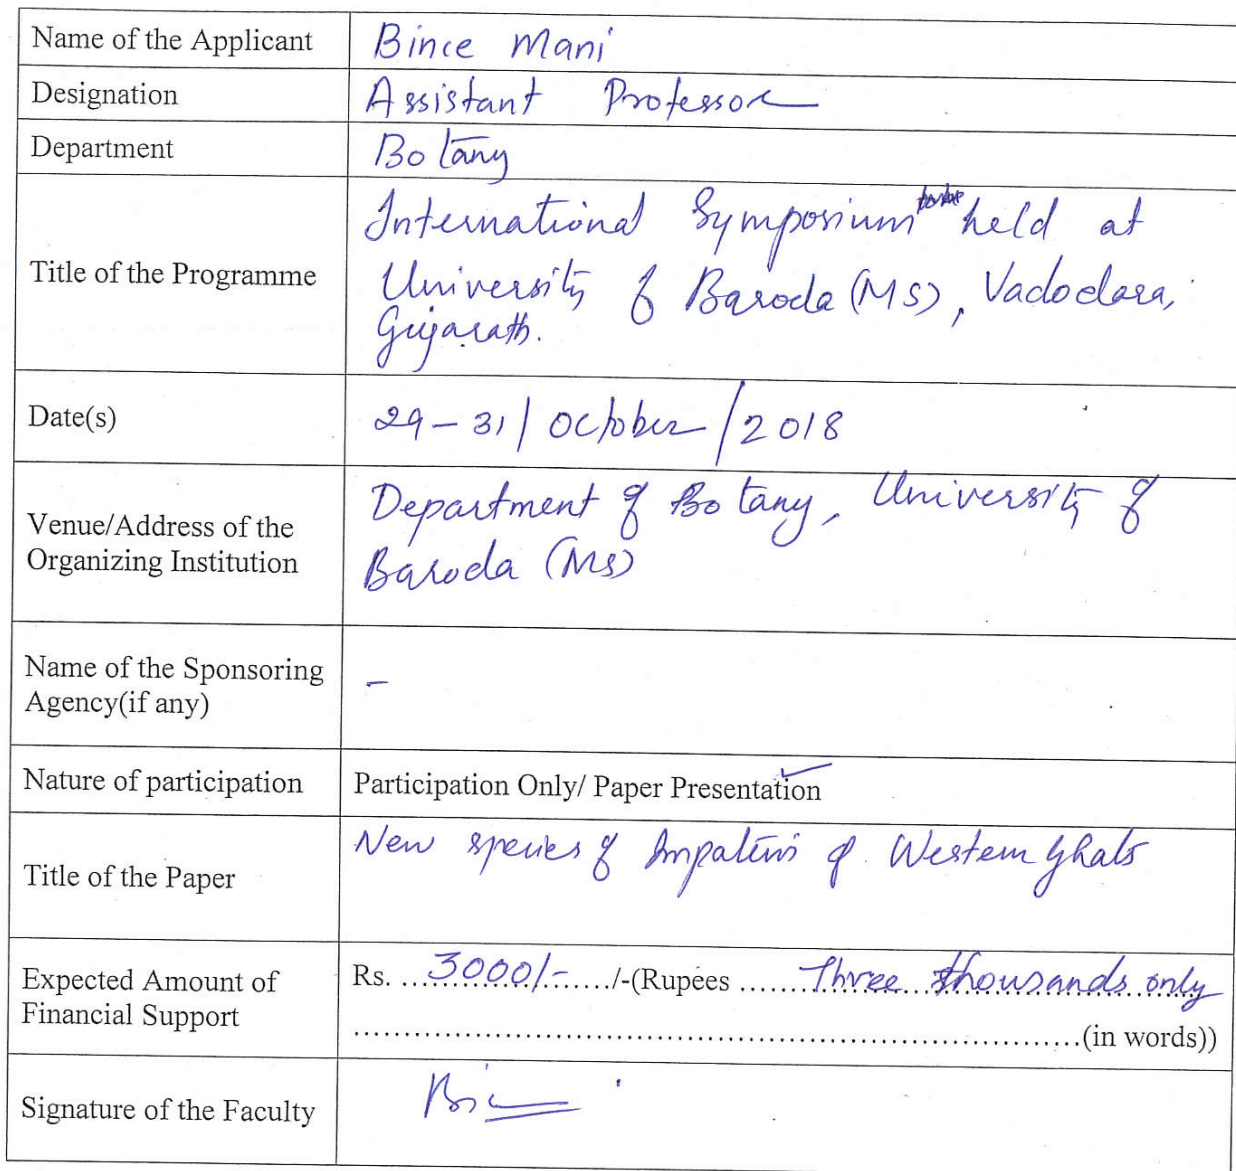 Name of the Applicant Bince Mani
Designation Assistant Professor
Department Botany
Title of the Programme
International Symposium held at
University of Baroda (MS), Vadodara,
Gujarath.
Date(s) 29 - 31 / October / 2018
Venue/Address of the
Organizing Institution
Department of Botany, University of
Baroda (MS)
Name of the Sponsoring
Agency(if any)
-
Nature of participation Participation Only/ Paper Presentation
Title of the Paper New species of Impatiens of Western Ghats
Expected Amount of
Financial Support
Rs. ....3000/-......./-(Rupees ......Three thousands only
........................................................................(in words))
Signature of the Faculty